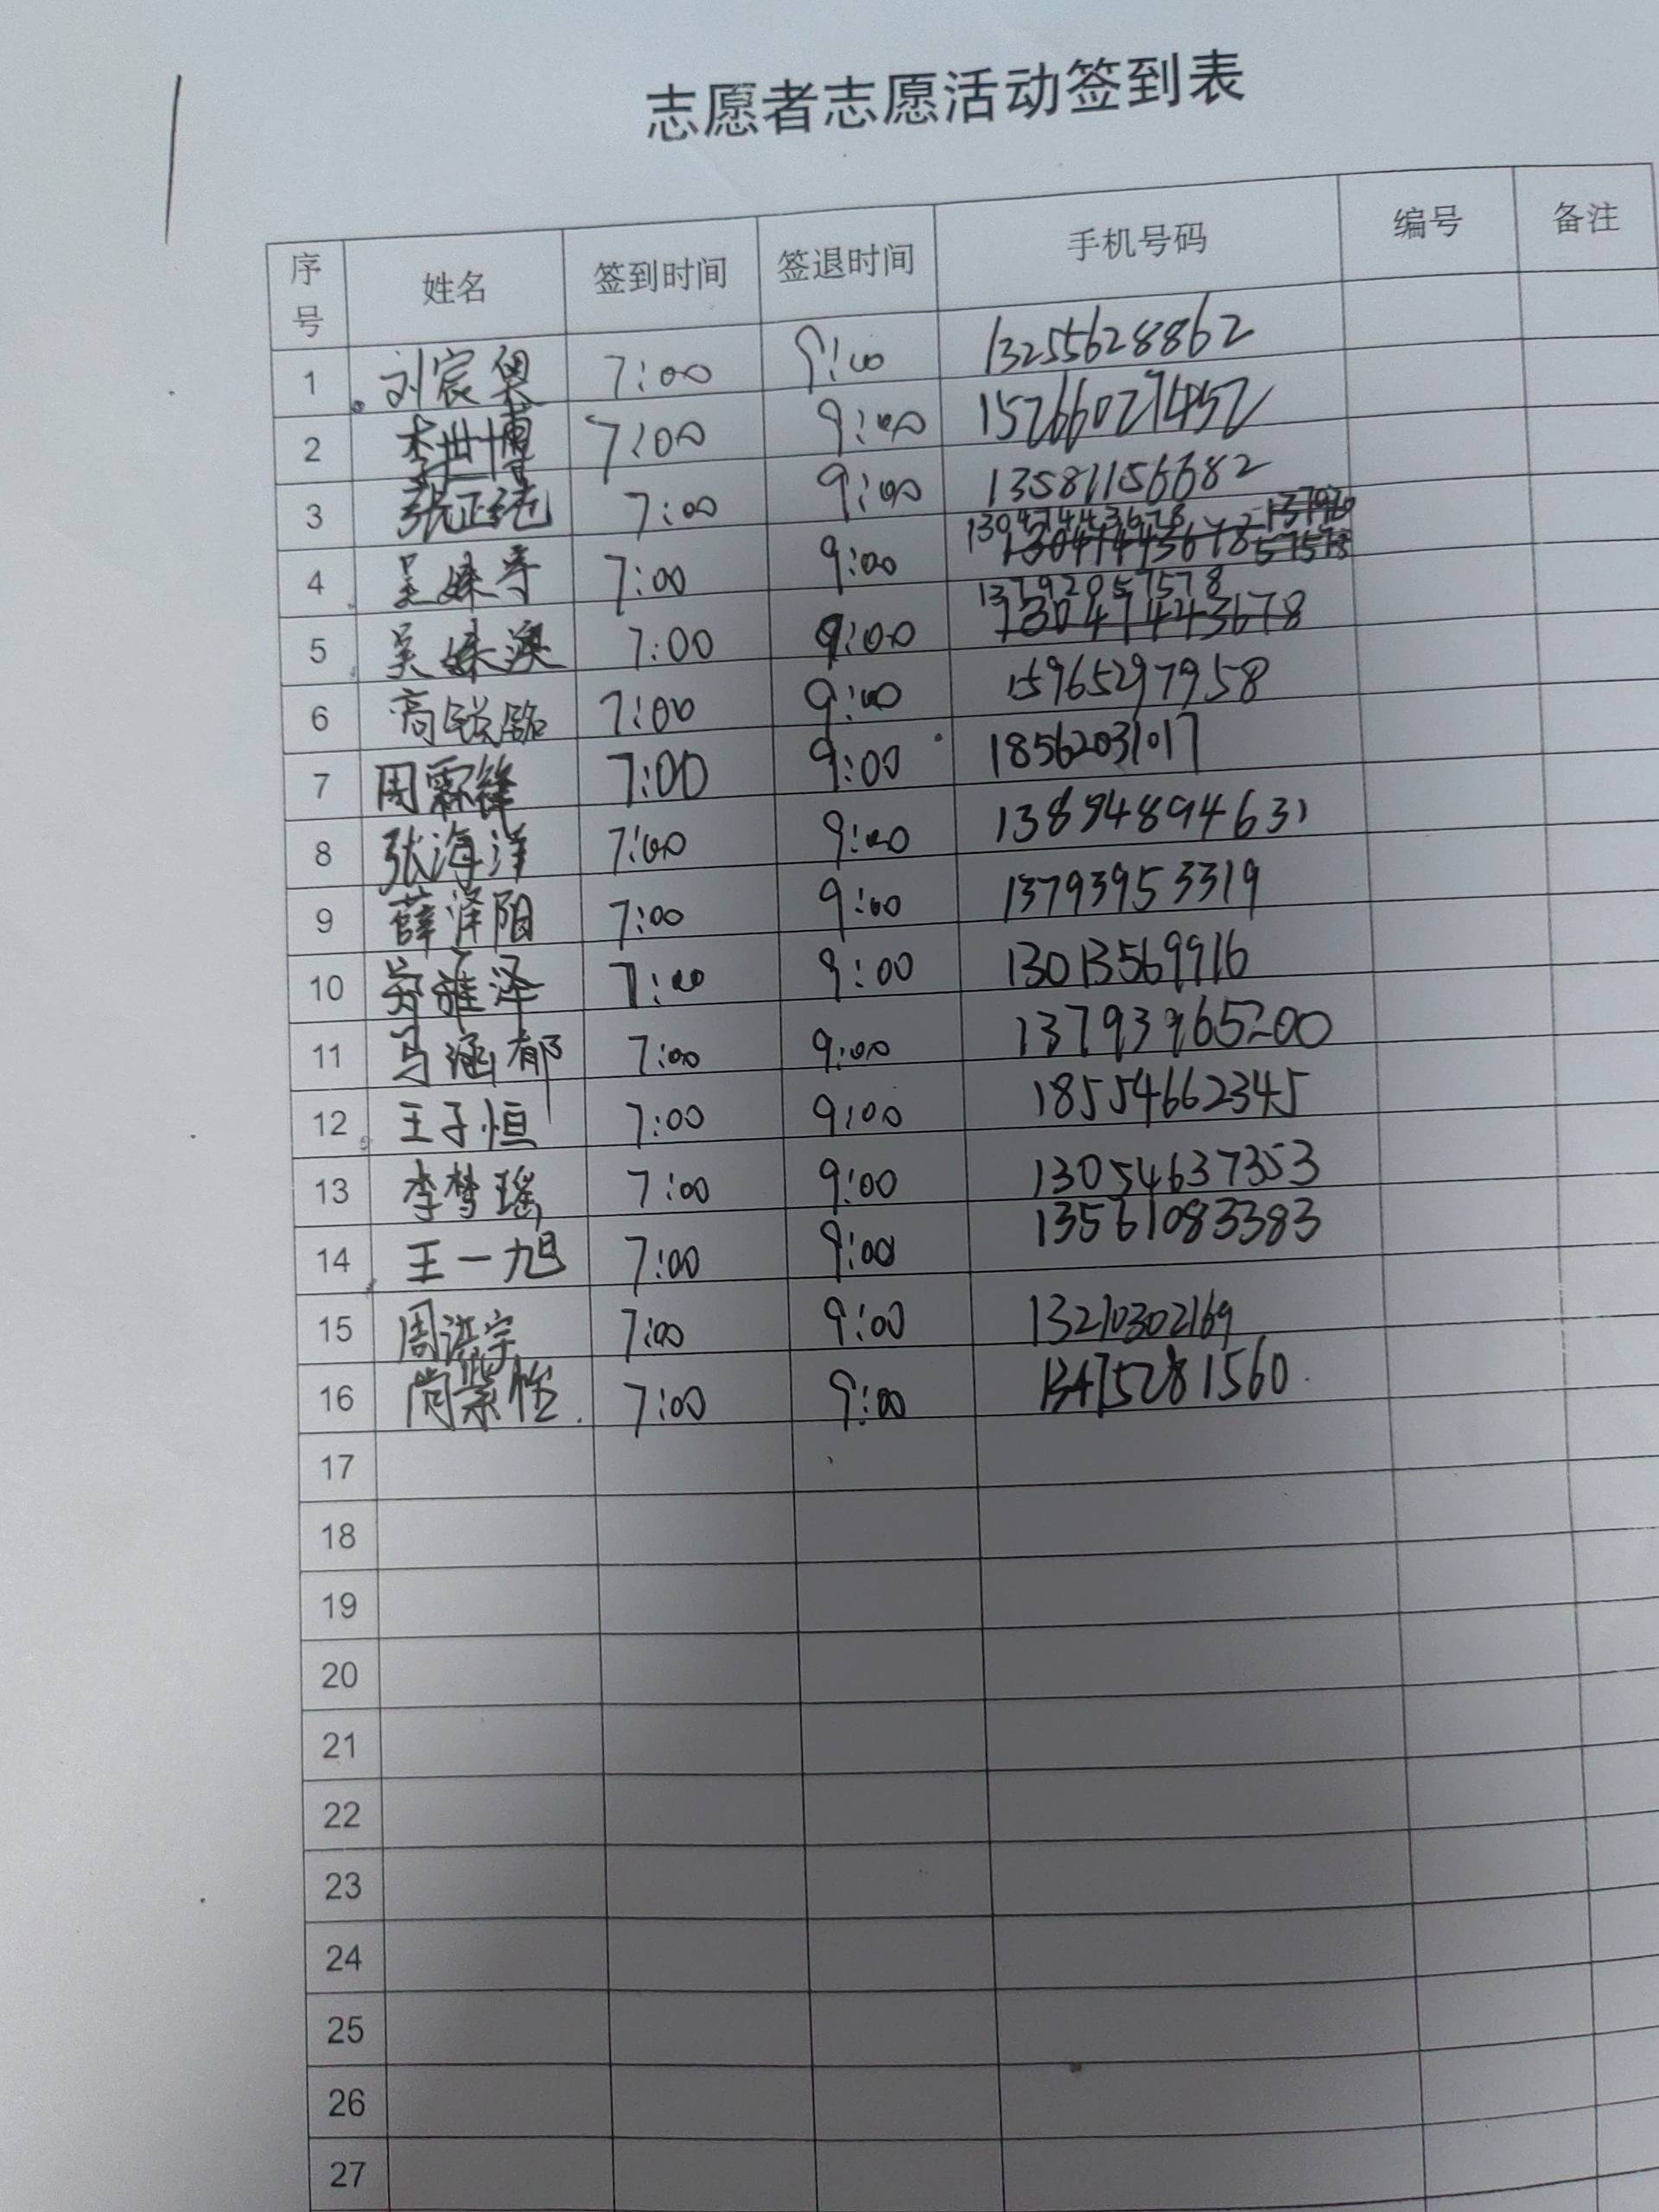 志愿者志愿活动签到表
序号 姓名 签到时间 签退时间 手机号码 编号 备注
1 刘宸奥 7:00 9:00 13255628862
2 李世博 7:00 9:00 15266027452
3 张正 7:00 9:00 13581156682
4 吴姝 7:00 9:00 13047443678
5 吴姝澳 7:00 9:00 13792057578
6 高锐 7:00 9:00 15965297958
7 周霖锋 7:00 9:00 18562031017
8 张海洋 7:00 9:00 13894894631
9 薛泽阳 7:00 9:00 13793953319
10 雅泽 7:00 9:00 13013569916
11 马涵郁 7:00 9:00 13793965200
12 王子恒 7:00 9:00 18554662345
13 李梦瑶 7:00 9:00 13054637353
14 王一旭 7:00 9:00 13561083383
15 周洪宇 7:00 9:00 13210302169
16 尚紫怡 7:00 9:00 13475281560
17
18
19
20
21
22
23
24
25
26
27